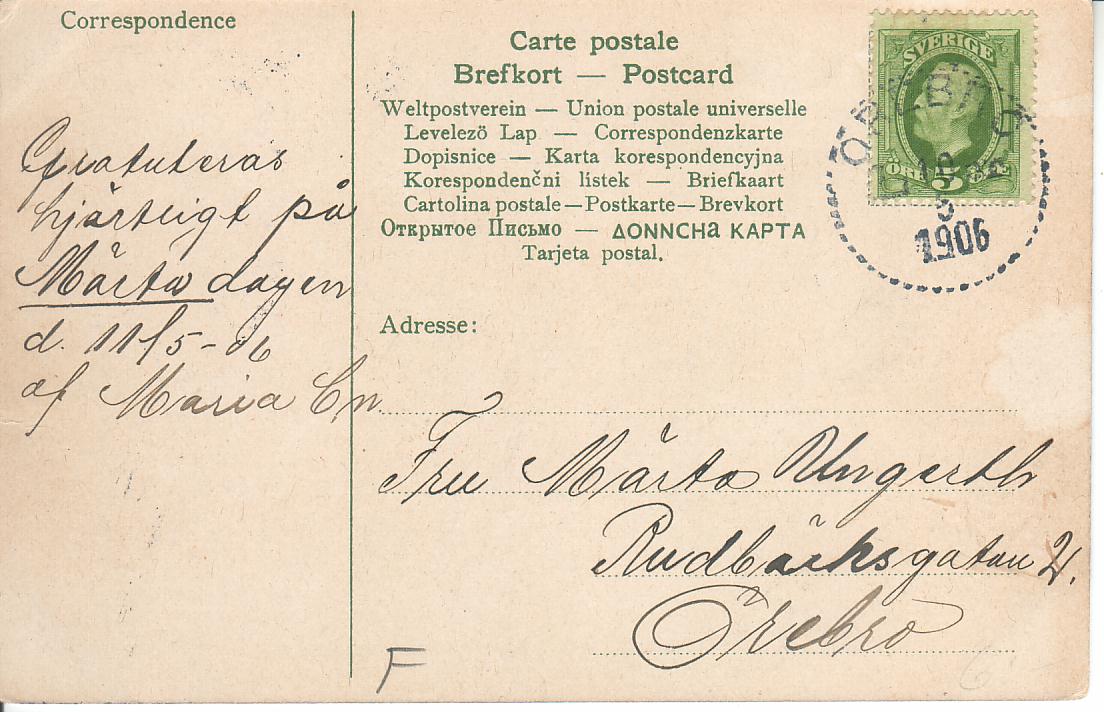 Correspondence
Gratuleras
hjärtligt på
Märta dagen
d. 11/5-06
af Maria Cn
Carte postale
Brefkort — Postcard
Weltpostverein — Union postale universelle
Levelezö Lap — Correspondenzkarte
Dopisnice — Karta korespondencyjna
Korespondenčni listek — Briefkaart
Cartolina postale — Postkarte — Brevkort
Открытое Письмо — ΔΟΝΝCHа ΚΑΡΤΑ
Tarjeta postal.
SVERIGE
ÖRE 5 ÖRE
ÖREBRO
10
5
1906
Adresse:
Fru Märta Ungerth
Rudbäcksgatan 21.
Örebro
F